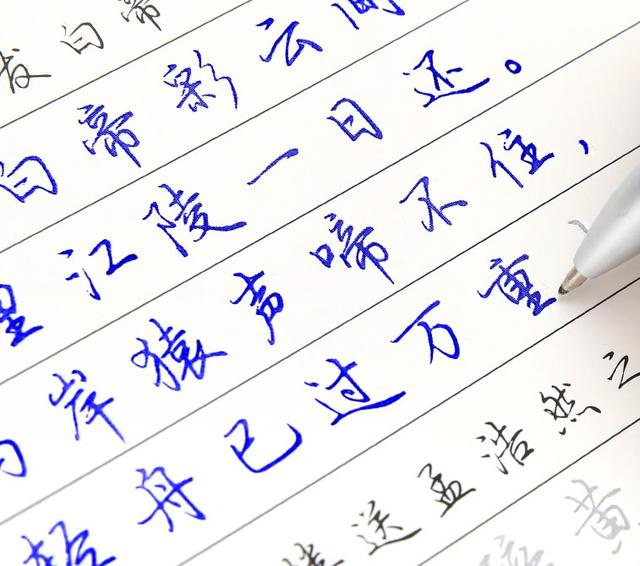 发白帝
白帝彩云间
里江陵一日还。
岸猿声啼不住，
轻舟已过万重
楼送孟浩然之
黄